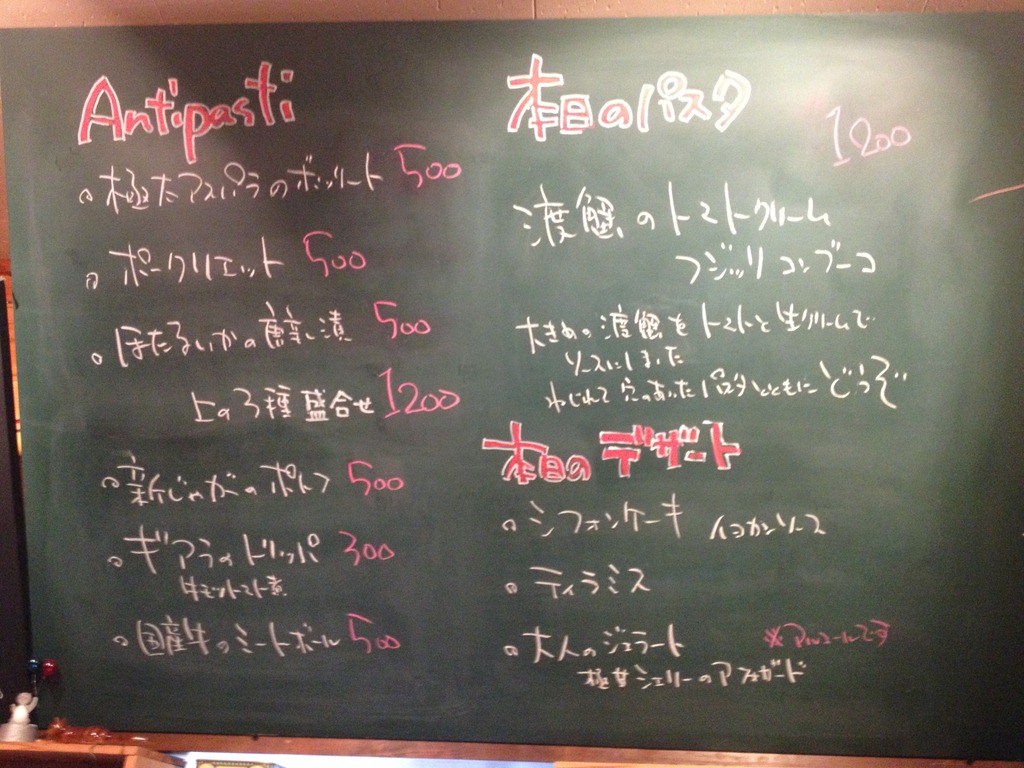 Antipasti
極太アスパラのボッリート 500
ポークリエット 500
ほたるいかの醤油漬 500
上の3種盛合せ 1200
新じゃがのポトフ 500
ギアラのトリッパ 300
牛モツトマト煮
国産牛のミートボール 500
本日のパスタ
1200
渡蟹のトマトクリーム
フジッリ コンブーコ
大きめの渡蟹をトマトと生クリームで
ソースにしました
ねじれて穴のあいたパスタとともにどうぞ
本日のデザート
シフォンケーキ イヨカンソース
ティラミス
大人のジェラート ※アルコールです
極甘シェリーのアフォガード